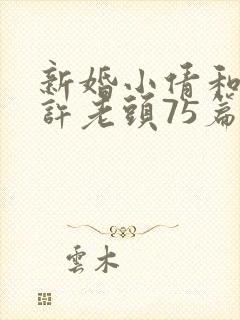 新婚小倩和
許老頭75篇
雲木